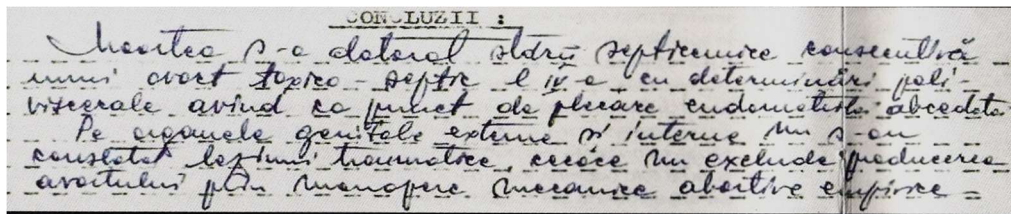 CONCLUZII :
Moartea s-a datorat stării septicemice consecutivă
unui avort toxico-septic l IV-a cu determinări poli-
viscerale avînd ca punct de plecare endometrita abcedată.
Pe organele genitale externe si interne nu s-au
constatat leziuni traumatice, ceeace nu exclude producerea
avortului prin manopere mecanice abortive empirice -